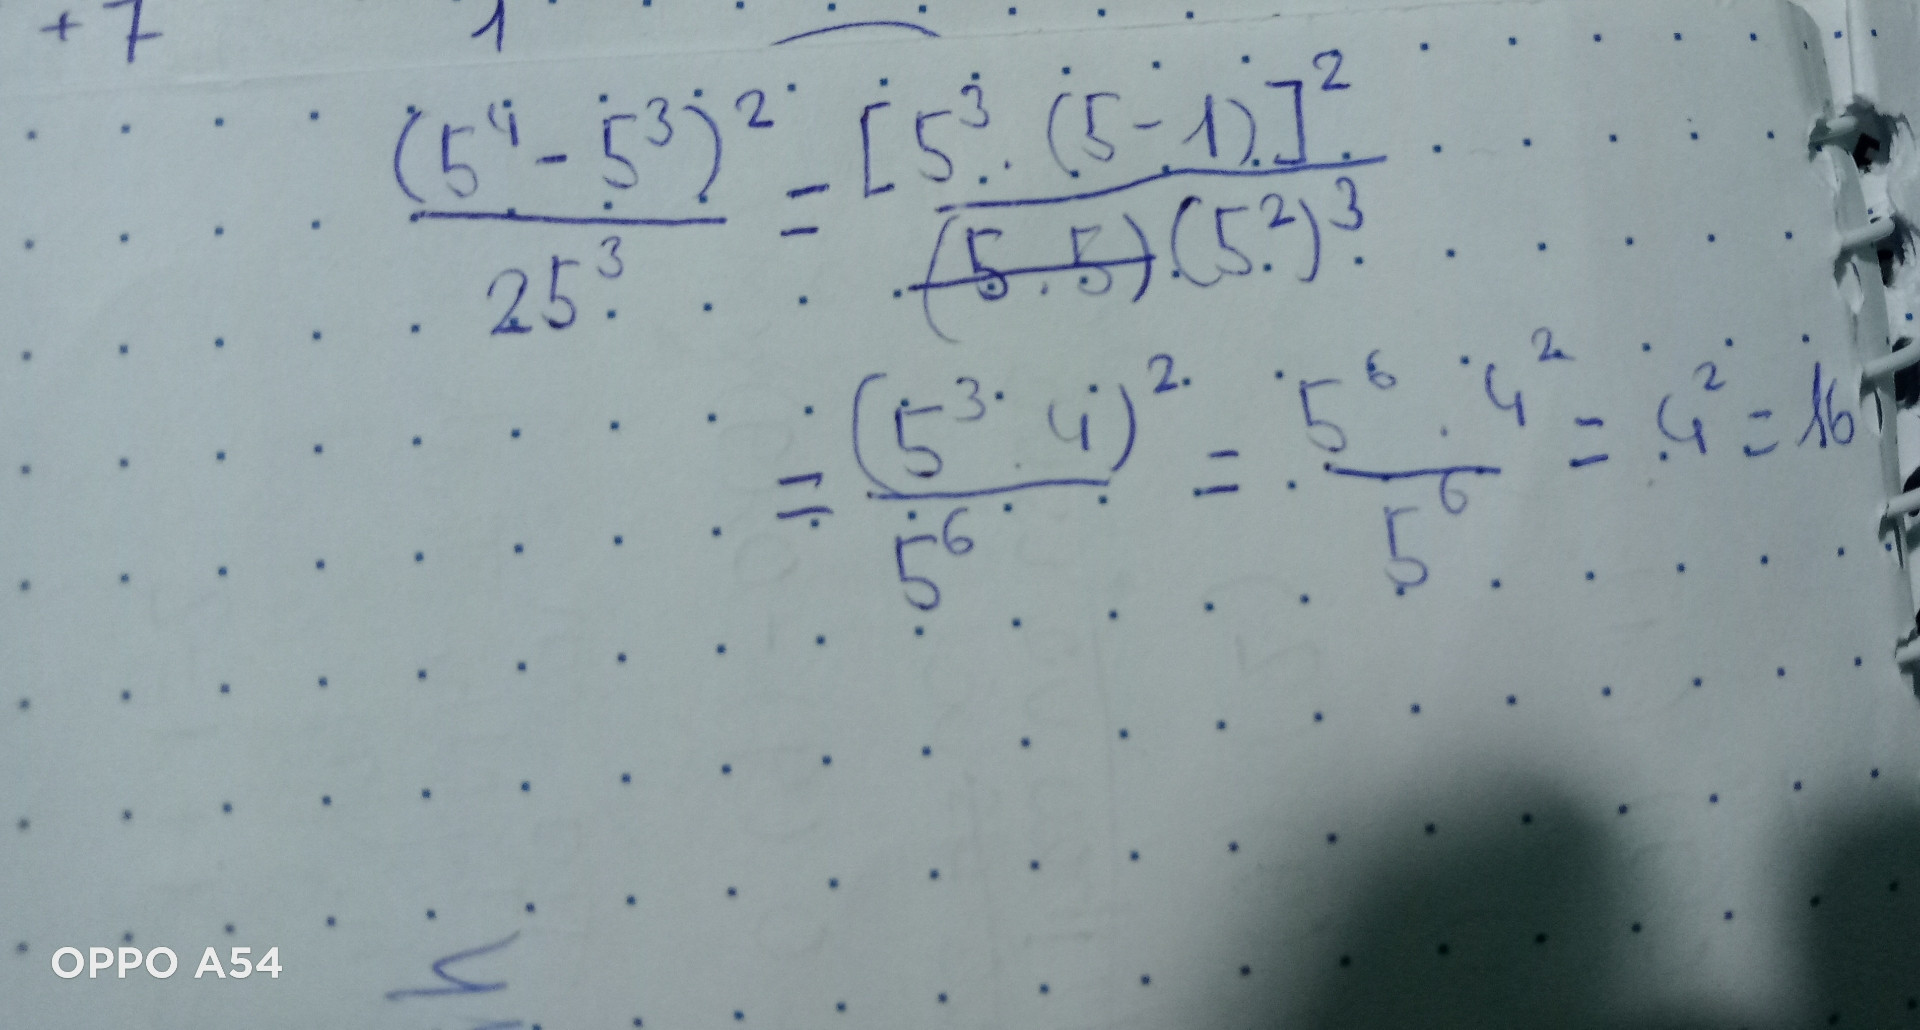 +7 1
(5⁴ - 5³)² / 25³ = [5³ . (5 - 1)]² / (5 . 5) (5²)³
= (5³ . 4)² / 5⁶ = 5⁶ . 4² / 5⁶ = 4² = 16
OPPO A54